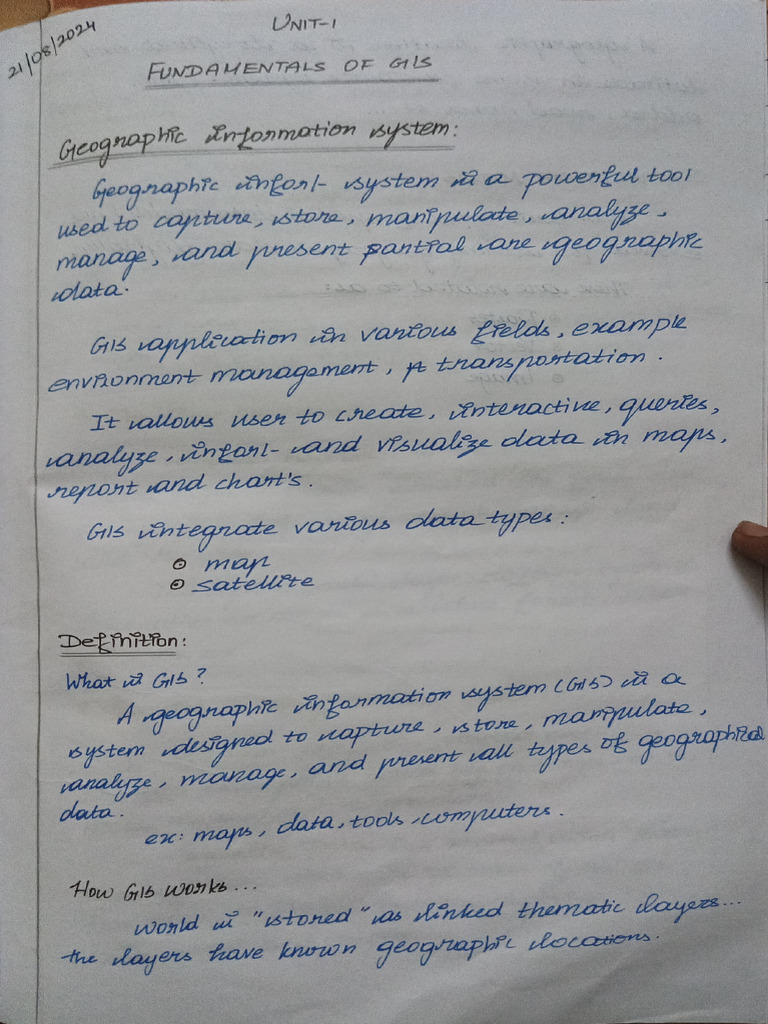 21/08/2024
UNIT-1
FUNDAMENTALS OF GIS
Geographic information system:
Geographic infor/- system is a powerful tool
used to capture, store, manipulate, analyze,
manage, and present partial are geographic
data.
GIS application in various fields, example
environment management, transportation.
It allows user to create, interactive, queries,
analyze, infor/- and visualize data in maps,
report and chart's.
GIS integrate various data types:
⊙ map
⊙ satellite
Definition:
What is GIS?
A geographic information system (GIS) is a
system designed to capture, store, manipulate,
analyze, manage, and present all types of geographical
data.
ex: maps, data, tools, computers.
How GIS works...
world is "stored" as linked thematic layers...
the layers have known geographic locations.